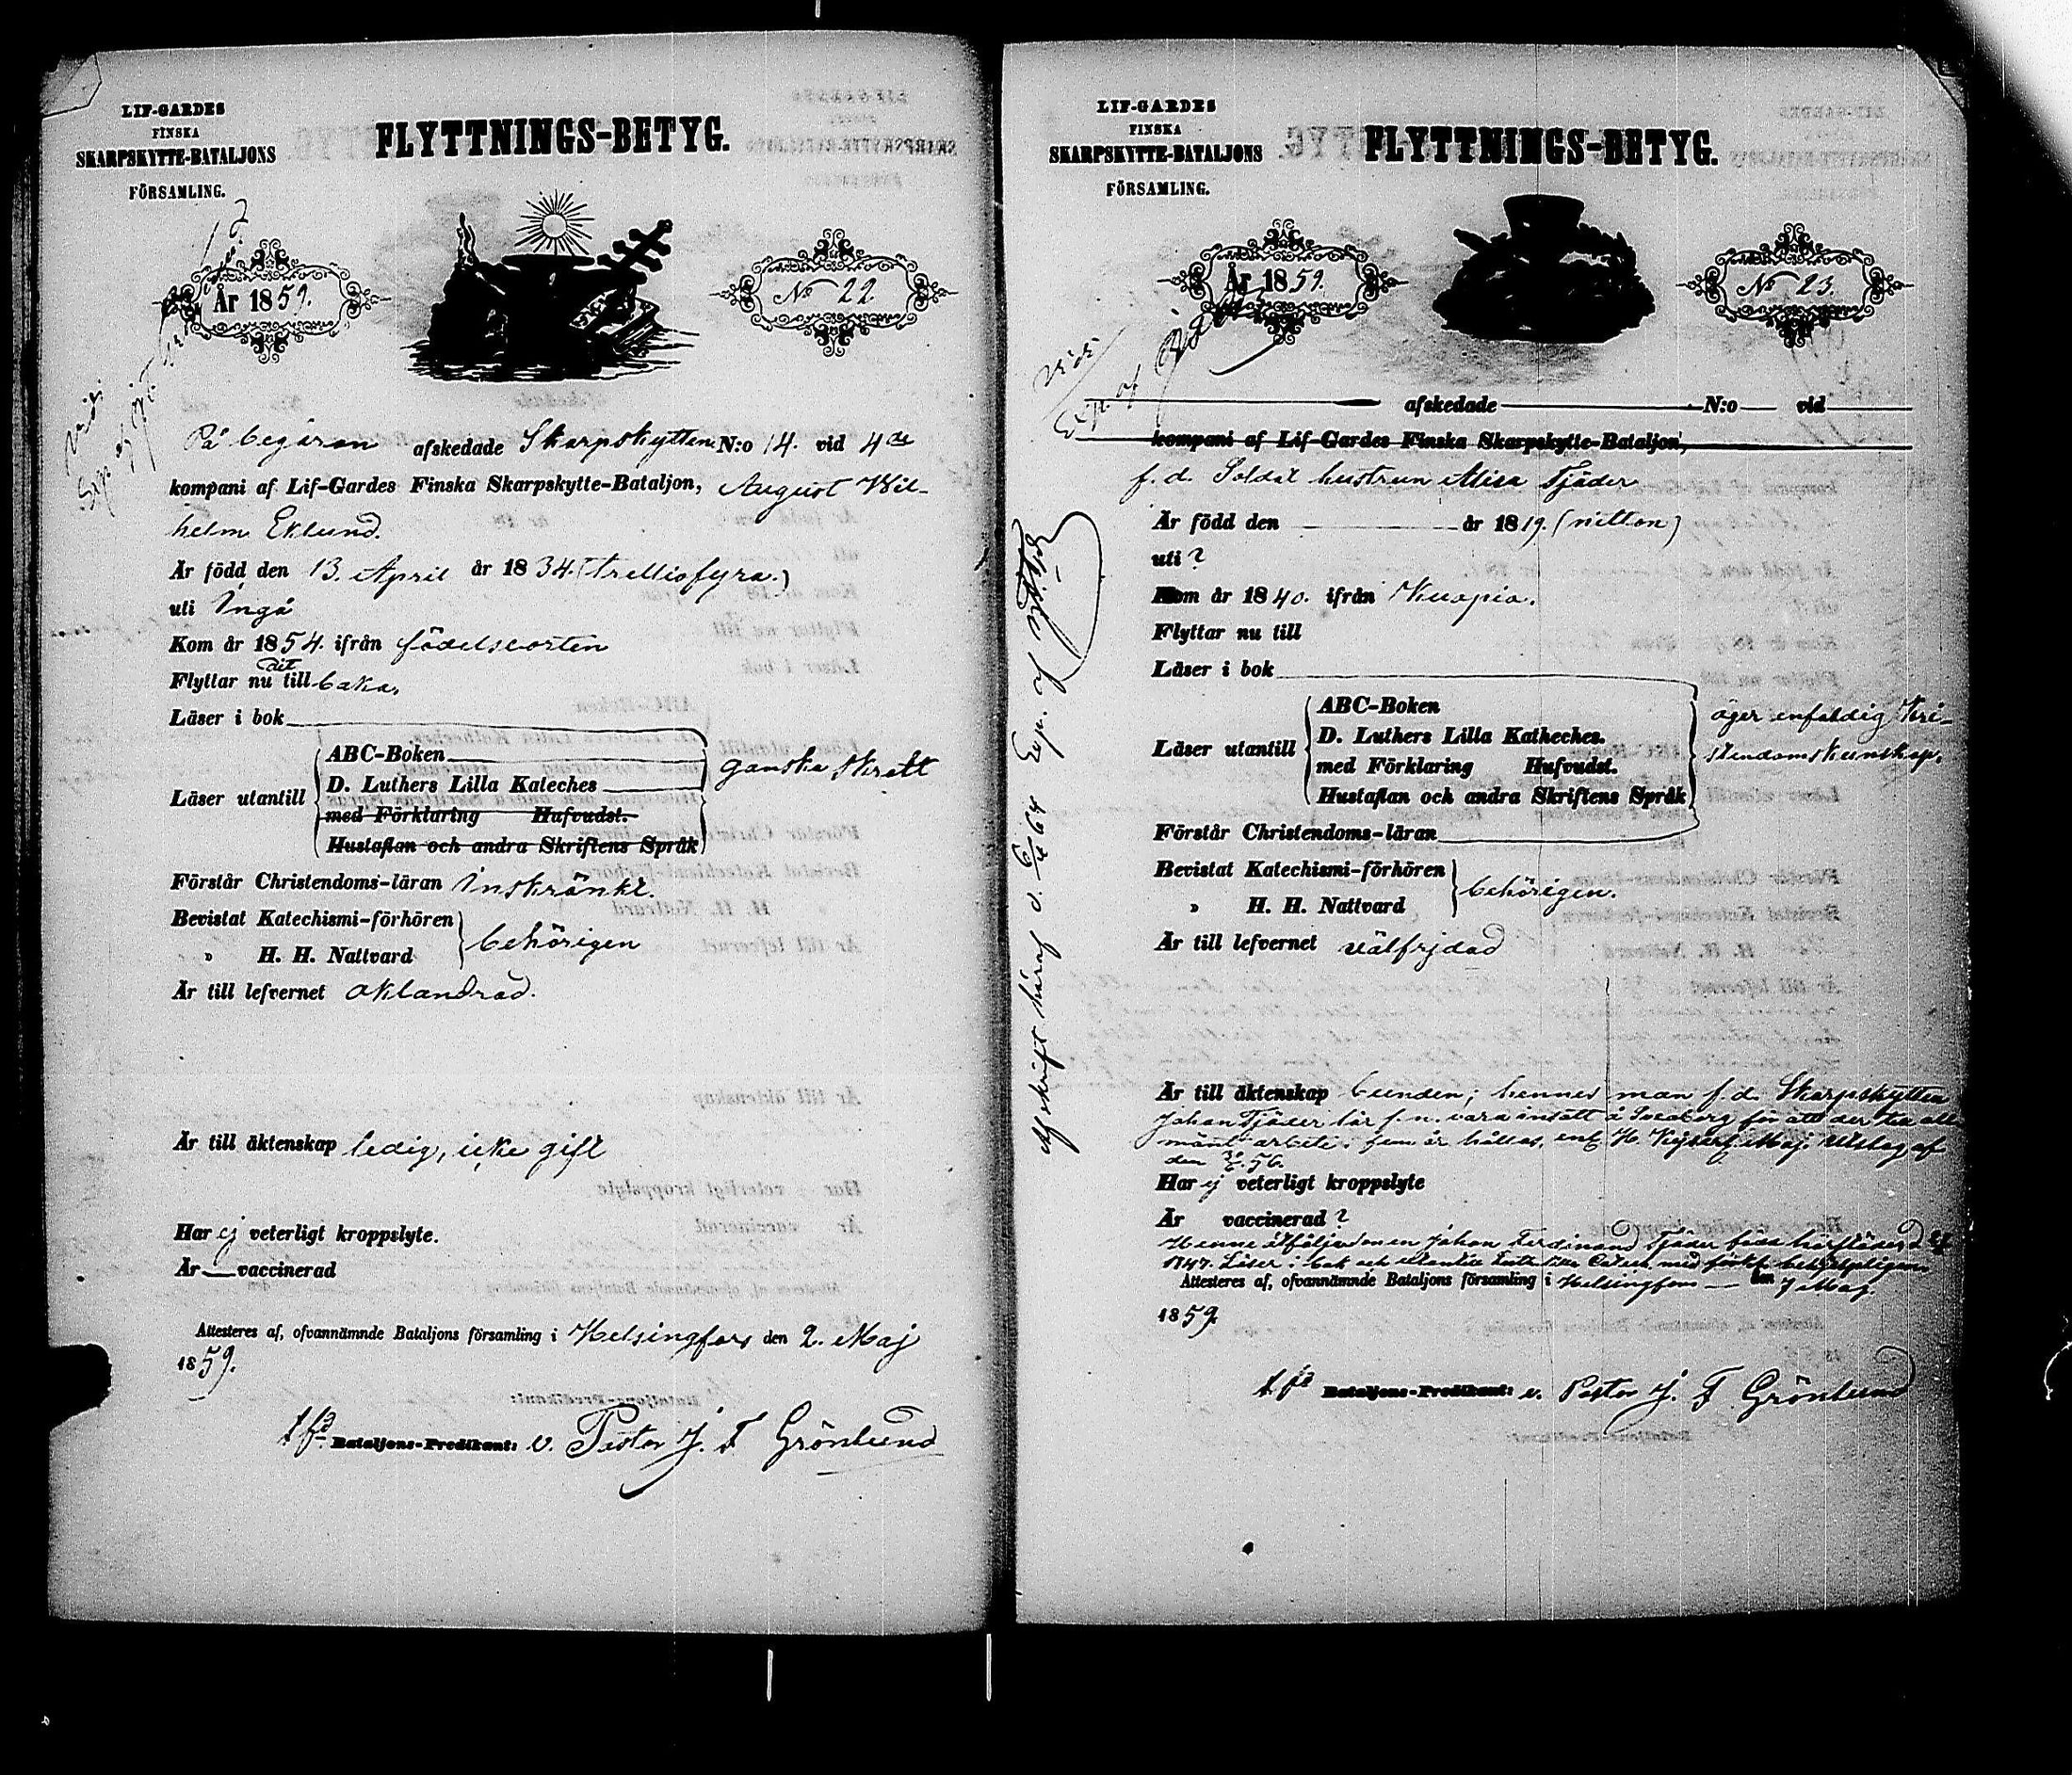 LIF-GARDES
FINSKA
SKARPSKYTTE-BATALJONS
FÖRSAMLING.
FLYTTNINGS-BETYG.
År 1859.
No 22
På begäran afskedade Skarpskytten N:o 14. vid 4de
kompani af Lif-Gardes Finska Skarpskytte-Bataljon, August Wil-
helm Eklund.
Är född den 13. April år 1834. (trettiofyra.)
uti Ingå
Kom år 1854. ifrån födelseorten
Flyttar nu till dit baka.
Läser i bok
ABC-Boken
Läser utantill D. Luthers Lilla Kateches ganska skralt
med Förklaring Hufvudst.
Hustaflan och andra Skriftens Språk
Förstår Christendoms-läran inskränkt.
Bevistat Katechismi-förhören
» H. H. Nattvard behörigen
Är till lefvernet oklandrad.
Är till äktenskap ledig, icke gift
Har ej veterligt kroppslyte.
Är vaccinerad
Attesteres af, ofvannämnde Bataljons församling i Helsingfors den 2. Maj
1859.
t.f. Bataljons-Predikant: v. Pastor J. F. Grönlund
LIF-GARDES
FINSKA
SKARPSKYTTE-BATALJONS
FÖRSAMLING.
FLYTTNINGS-BETYG.
År 1859.
No 23.
afskedade N:o vid
kompani af Lif-Gardes Finska Skarpskytte-Bataljon,
f. d. Soldat hustrun Tjäder
Är född den år 1819. (nitton)
uti ?
Kom år 1840. ifrån Kuopio.
Flyttar nu till
Läser i bok
ABC-Boken
Läser utantill D. Luthers Lilla Katheches.
med Förklaring Hufvudst.
Hustaflan och andra Skriftens Språk
äger enfaldig Kri-
stendomskunskap.
Förstår Christendoms-läran
Bevistat Katechismi-förhören
» H. H. Nattvard behörigen.
Är till lefvernet välfrjdad
Är till äktenskap bunden; hennes man f. d. Skarpskytten
Johan Tjäder lär f. n. vara insatt å Sveaborg för att der till all-
mänt arbete i fem år hållas, enl. H. Kejserl. Maj. utslag af
den 56.
Har ej veterligt kroppslyte
Är vaccinerad ?
Henne åtföljer sonen Johan Ferdinand Tjäder född
1847. Läser i bok och utantill
Attesteres af, ofvannämnde Bataljons församling i Helsingfors den 7 Maj.
1859.
t.f. Bataljons-Predikant: v. Pastor J. F. Grönlund
Afskrift häraf d. 6/4 64 Exp. af